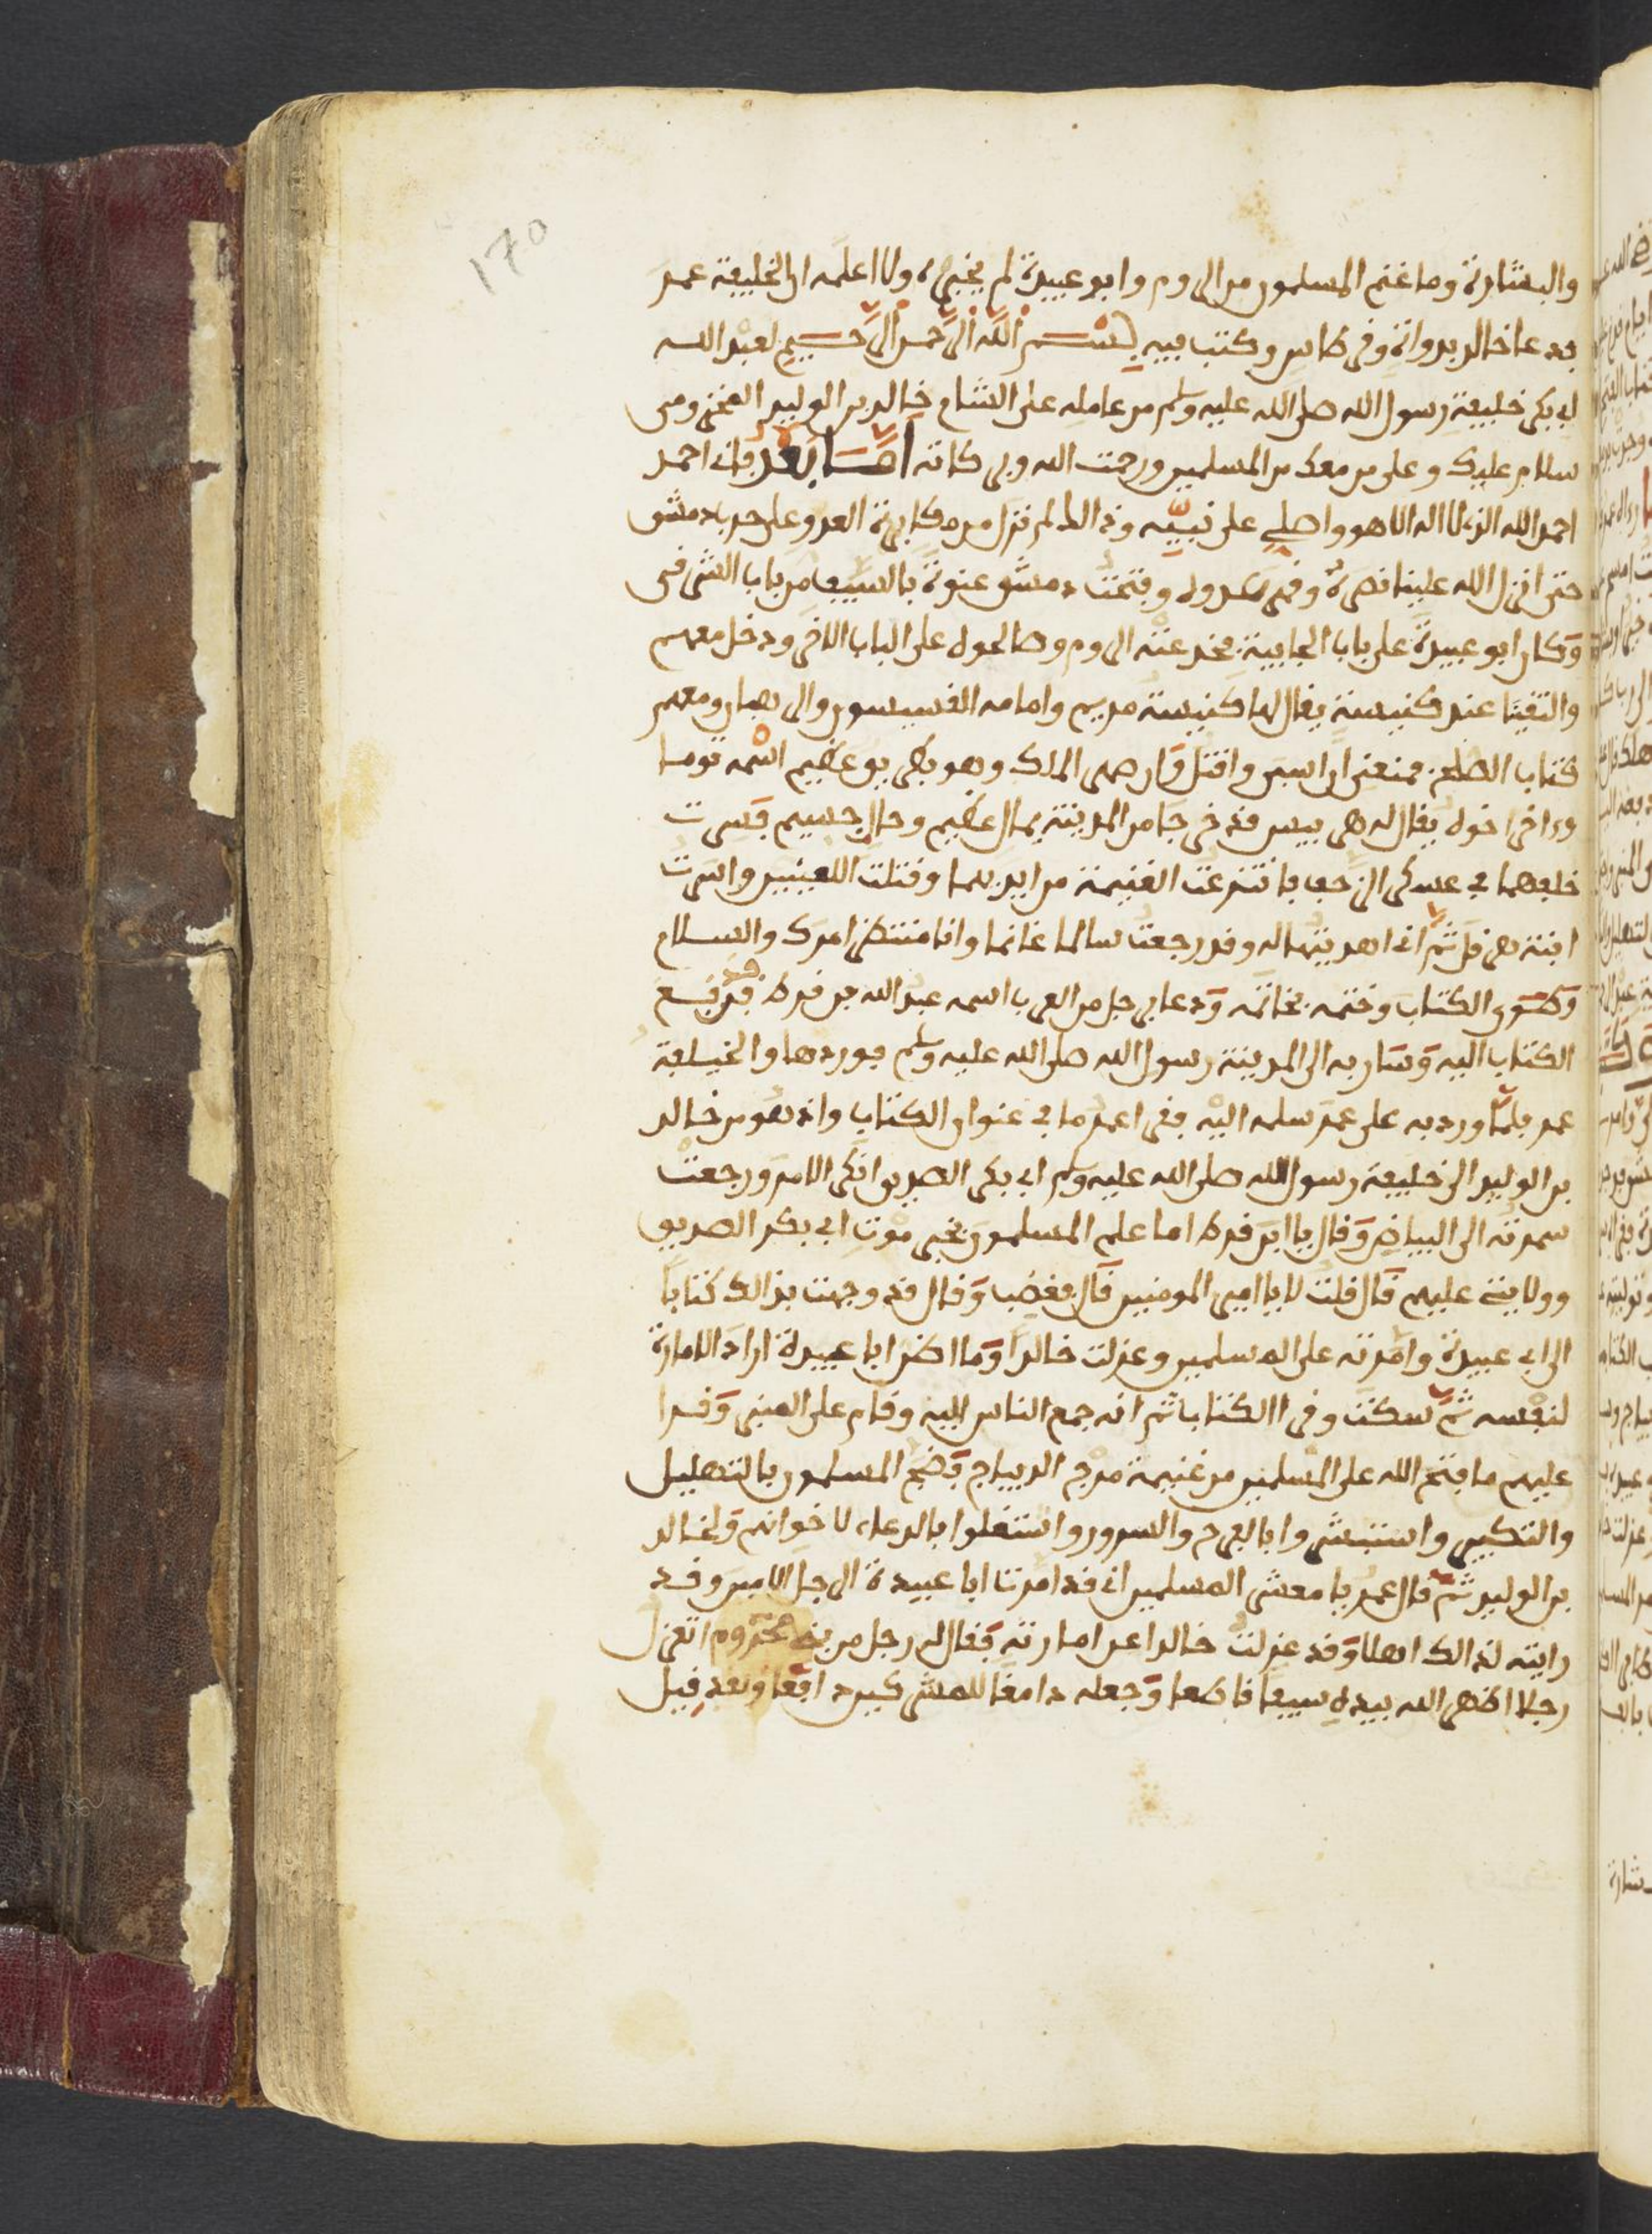 170
والبشارة وما غنم المسلمون من الروم وابو عبيدة لم يخبره ولا اعلمه ان الخليفة عمر
فدعا خالد بدواة وقرطاس وكتب فيه بسم الله الرحمن الرحيم لعبد الله
ابي بكر خليفة رسول الله صلى الله عليه وسلم من عامله على الشام خالد بن الوليد المخزومي
سلام عليك وعلى من معك من المسلمين ورحمت الله وبركاته اما بعد فاني احمد
احمد الله الذي لا اله الا هو واصلي على نبيه وذالك لم نزل من مكابرة العدو على حرب دمشق
حتى انزل الله علينا نصره وقهر عدوه وفتحت دمشق عنوة بالسيف من باب الشرقي
وكان ابو عبيدة على باب الجابية فخدعته الروم وصالحوه على الباب الاخر ودخل معهم
والتقينا عند كنيسة يقال لها كنيسة مريم وامامه القسيسون والرهبان ومعهم
كتاب الصلح فمنعني ان اسبي واقتل وان صهر الملك وهو بطريق عظيم اسمه توما
وءاخر اخوه يقال له هربيس قد خرجا من المدينة بمال عظيم وحال جسيم فسرت
خلفهما في عسكر الزحف فانتزعت الغنيمة من ايديهما وقتلت اللعينين واسرت
ابنة هرقل ثم اني اهديتها له وقد رجعت سالما غانما وانا منتظر امرك والسلام
وطوى الكتاب وختمه بخاتمه ودعا برجل من العرب اسمه عبد الله بن قرط فدفع
الكتاب اليه وسار به الى المدينة رسول الله صلى الله عليه وسلم فوردها والخليفة
عمر فلما ورد به على عمر سلمه اليه فقرا عمر ما في عنوان الكتاب واذ هو من خالد
بن الوليد الى خليفة رسول الله صلى الله عليه وسلم ابي بكر الصديق انكر الامر ورجعت
سمرته الى البياض وقال يا ابن قرط اما علم المسلمون بخبر موت ابي بكر الصديق
وولايتي عليهم قال قلت لا يا امير المومنين قال فغضب وقال قد وجهت بذالك كتابا
الى ابي عبيدة وامرته على المسلمين وعزلت خالدا وما اظن ابا عبيدة اراد الامارة
لنفسه ثم سكت وقرا الكتاب ثم انه جمع الناس اليه وقام على المنبر وقرا
عليهم ما فتح الله على المسلمين من غنيمة مرج الديباج فضج المسلمون بالتهليل
والتكبير واستبشروا بالفرح والسرور واشتغلوا بالدعاء لاخوانهم ولخالد
بن الوليد ثم قال عمر يا معشر المسلمين اني قد امرت ابا عبيدة الرجل الامين وقد
رايته لذالك اهلا وقد عزلت خالدا عن امارته فقال له رجل من بني مخزوم اتعزل
رجلا اظهر الله بيده سيفا قاطعا وجعله دامغا للمشركين دافعا وبعد قيل